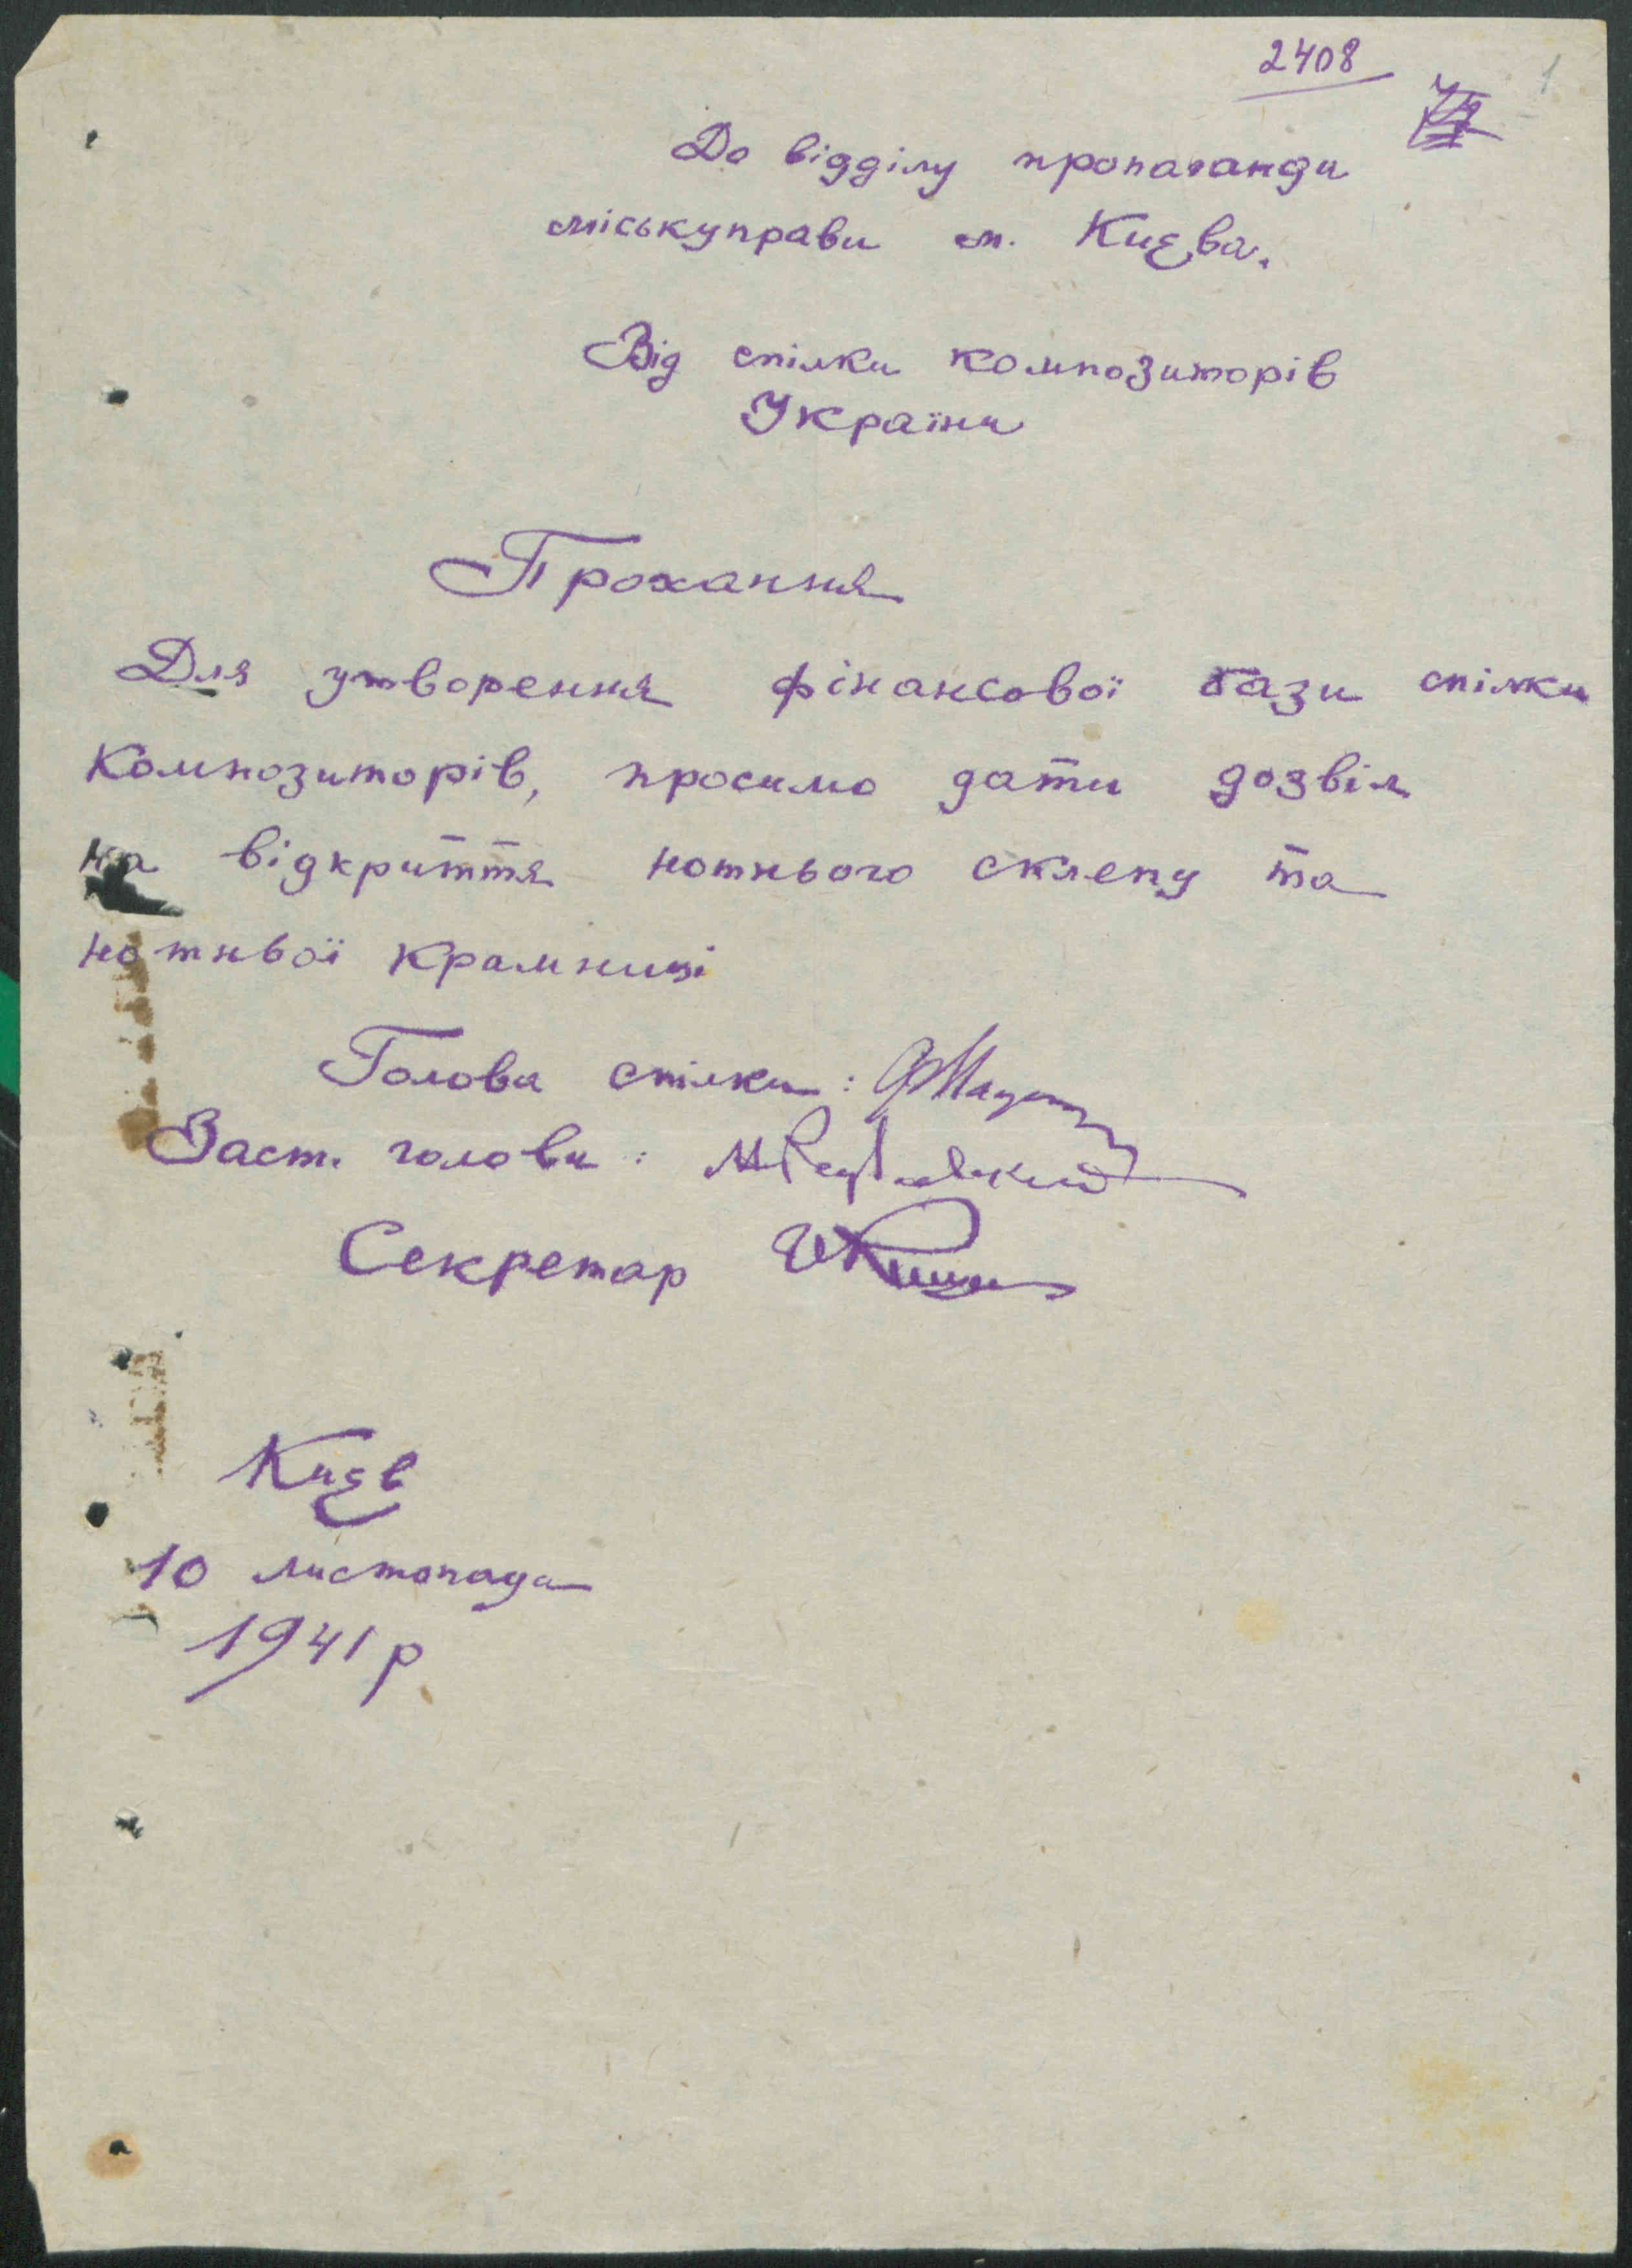 2408
1
До відділу пропаганди
міськуправи м. Києва.
Від спілки композиторів
України
Прохання
Для утворення фінансової бази спілки
композиторів, просимо дати дозвіл
на відкриття нотнього склепу та
нотньої крамниці
Голова спілки:
Заст. голови:
Секретар
Київ
10 листопада
1941 р.